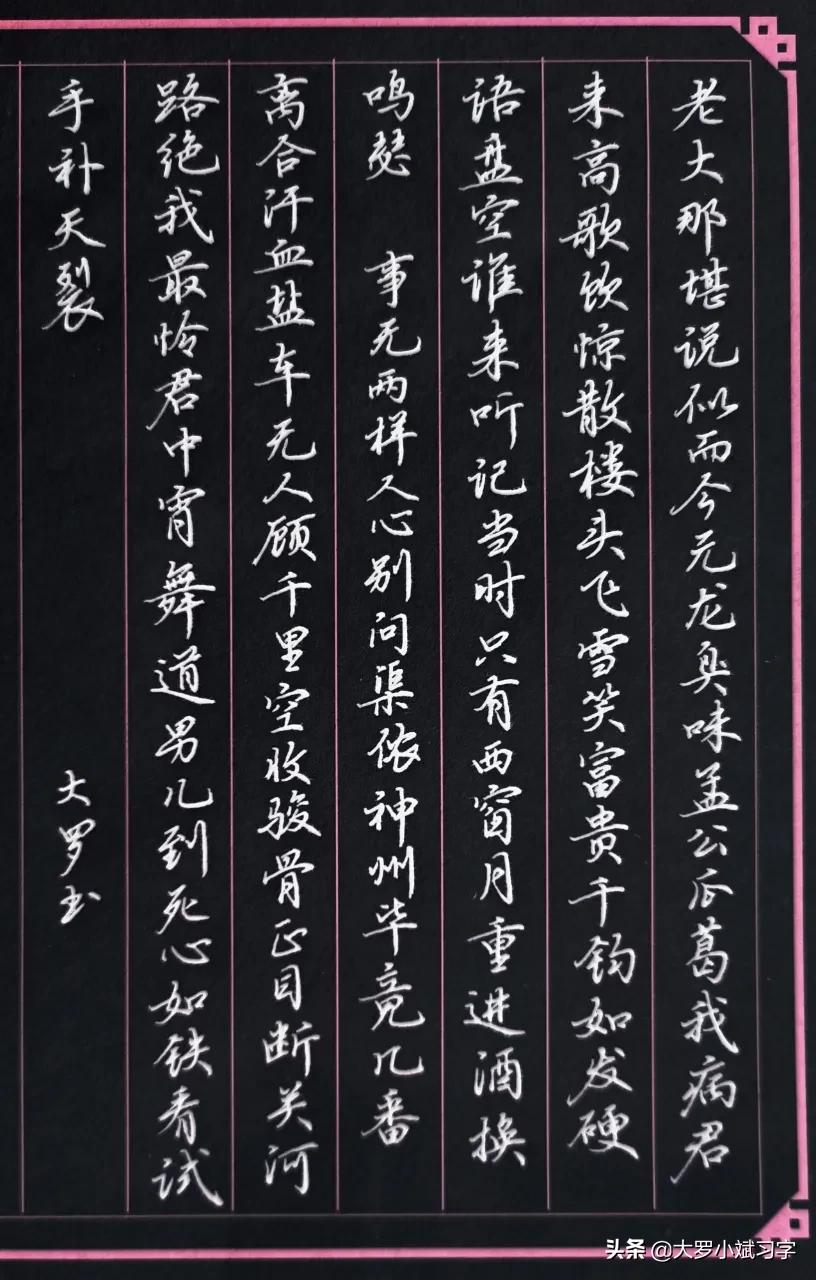 老大那堪说似而今元龙臭味孟公瓜葛我病君
来高歌饮惊散楼头飞雪笑富贵千钧如发硬
语盘空谁来听记当时只有西窗月重进酒换
鸣瑟 事无两样人心别问渠侬神州毕竟几番
离合汗血盐车无人顾千里空收骏骨正目断关河
路绝我最怜君中宵舞道男儿到死心如铁看试
手补天裂
大罗书
头条 @大罗小斌习字